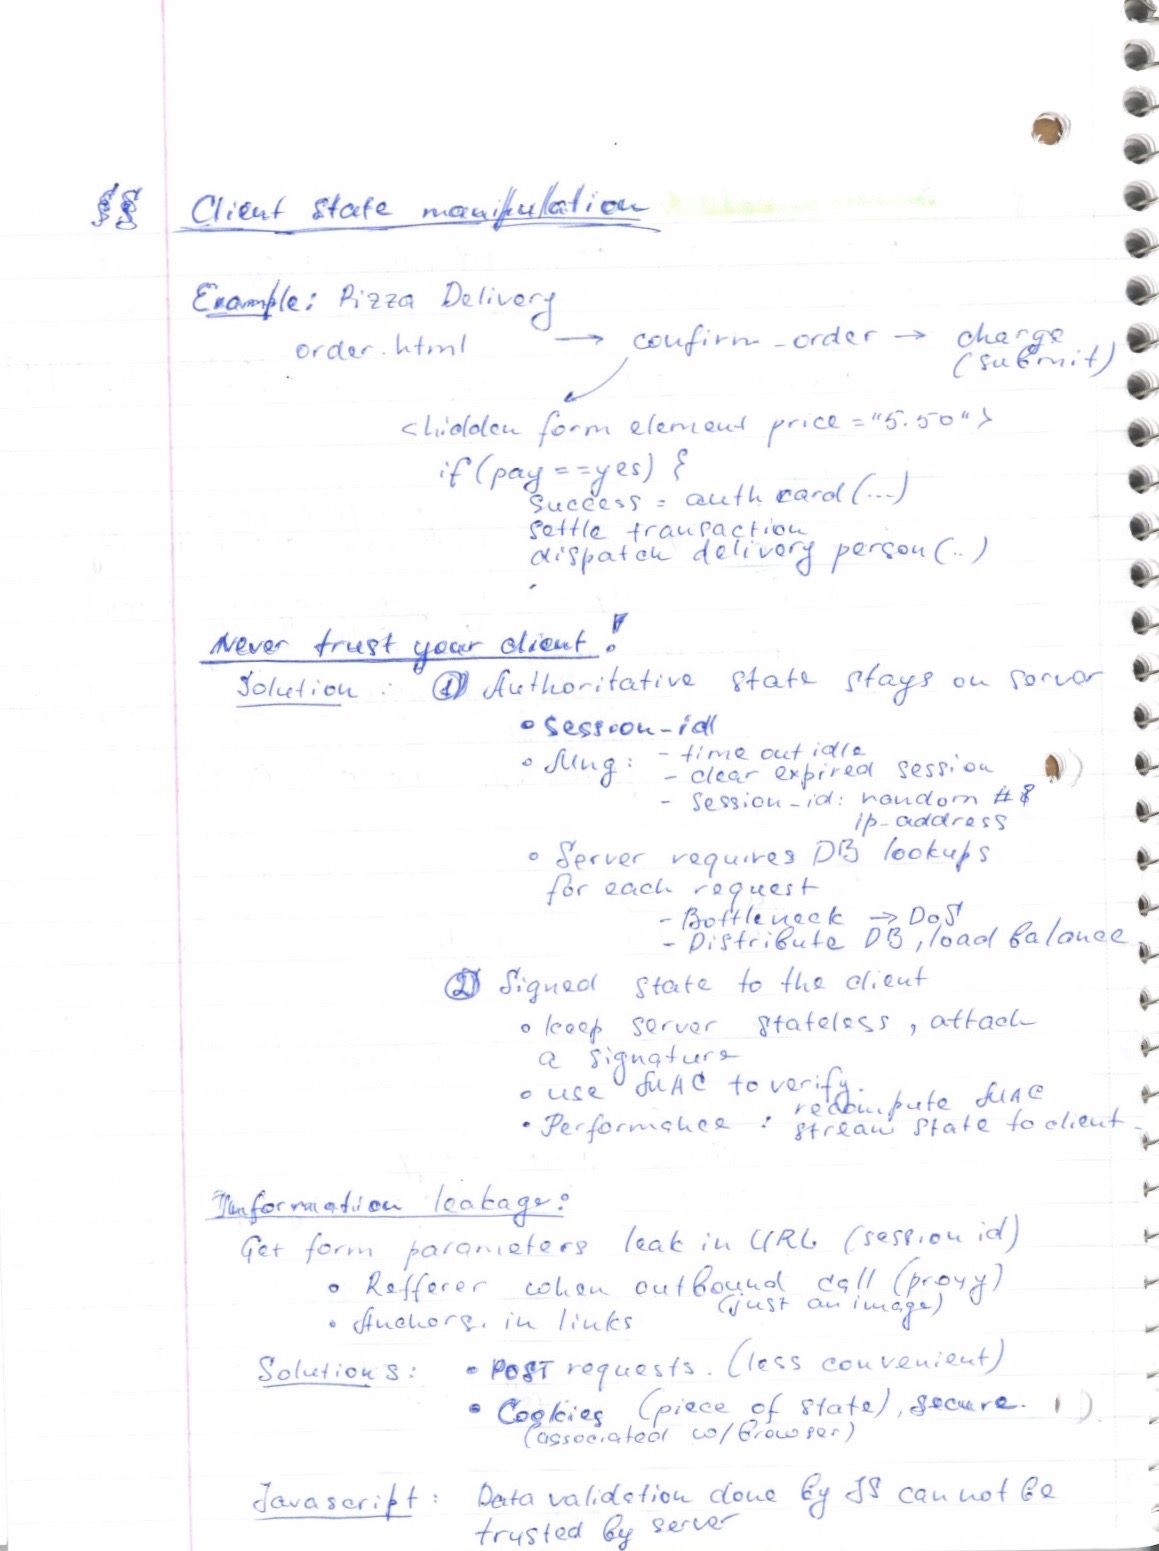 §§ Client state manipulation
Example: Pizza Delivery
order.html → confirm_order → charge
(submit)
<hidden form element price="5.50">
if (pay==yes) {
success = auth card(...)
settle transaction
dispatch delivery person(..)
Never trust your client!
Solution: ① Authoritative state stays on server
• session-id
• Mng: - time out idle
- clear expired session
- session-id: random # &
ip-address
• Server requires DB lookups
for each request
- Bottleneck → DoS
- Distribute DB, load balance
② Signed state to the client
• keep server stateless, attach
a signature
• use MAC to verify.
• Performance: recompute MAC
stream state to client
Information leakage:
Get form parameters leak in URL (session id)
• Refferer when outbound call (proxy)
(just an image)
• Anchors. in links
Solutions: • POST requests. (less convenient)
• Cookies (piece of state), secure.
(associated w/browser)
Javascript: Data validation done by JS can not be
trusted by server